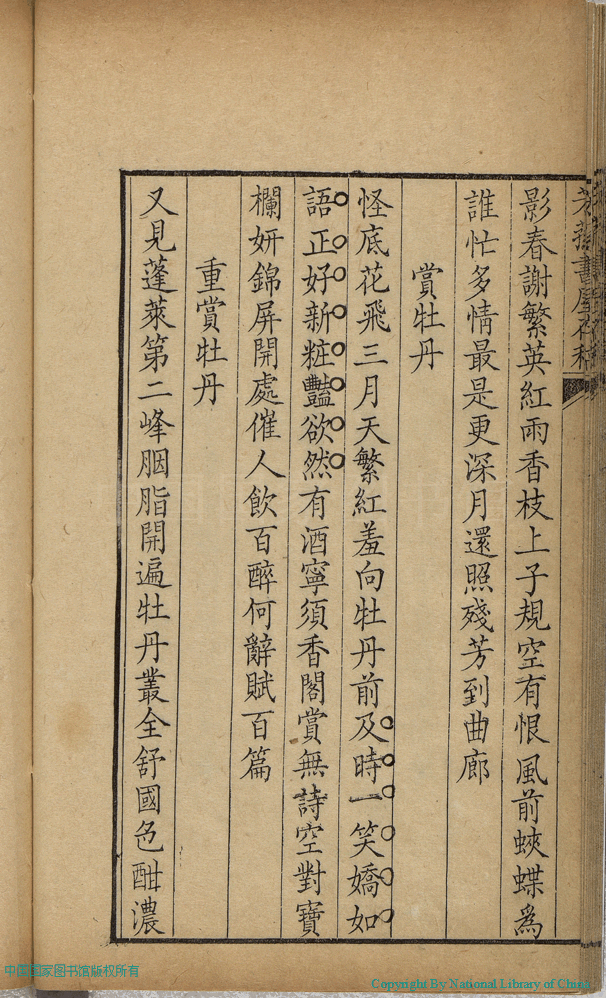 影春謝繁英紅雨香枝上子規空有恨風前蛺蝶為
誰忙多情最是更深月還照殘芳到曲廊
賞牡丹
怪底花飛三月天繁紅羞向牡丹前及時一笑嬌如
語正好新粧豔欲然有酒寧須香閣賞無詩空對寶
欄妍錦屏開處催人飲百醉何辭賦百篇
重賞牡丹
又見蓬萊第二峰胭脂開遍牡丹叢全舒國色酣濃
中国国家图书馆版权所有
Copyright By National Library of China